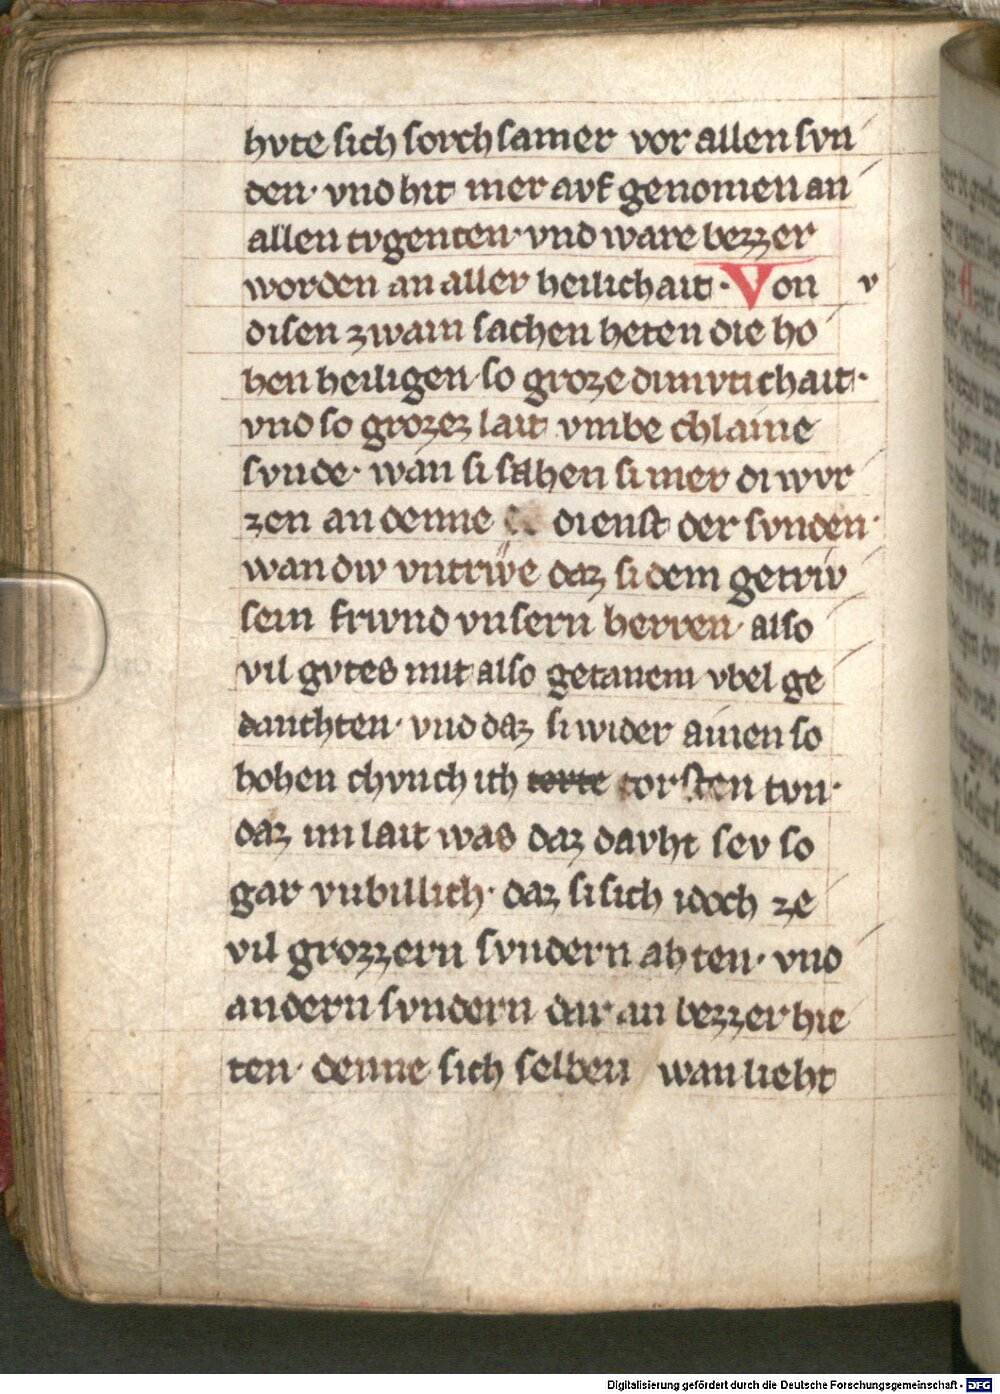 hvte sich sorchsamer vor allen svn
den· vnd hit mer avf genomen an
allen tvgenten· vnd ware bezzer
worden an aller heilichait· Von v
disen zwain sachen heten die ho
hen heiligen so groze dimvtichait·
vnd so grozez lait vmbe chlaine
svnde· wan si sahen si mer di wvr
zen an denne dienst der svnden·
wan div vntriwe daz si dem getriv
sem frivnd vnsern herren· also
vil gvtes mit also getanem vbel ge
danchten· vnd daz si wider ainen so
hohen chvnich ich torte torsten tvn·
daz im lait was daz davht sev so
gar vnbillich· daz si sich idoch ze
vil grozzern svndern ahten· vnd
andern svndern dar an bezzer hie
ten· denne sich selben wan lieht
Digitalisierung gefördert durch die Deutsche Forschungsgemeinschaft - DFG